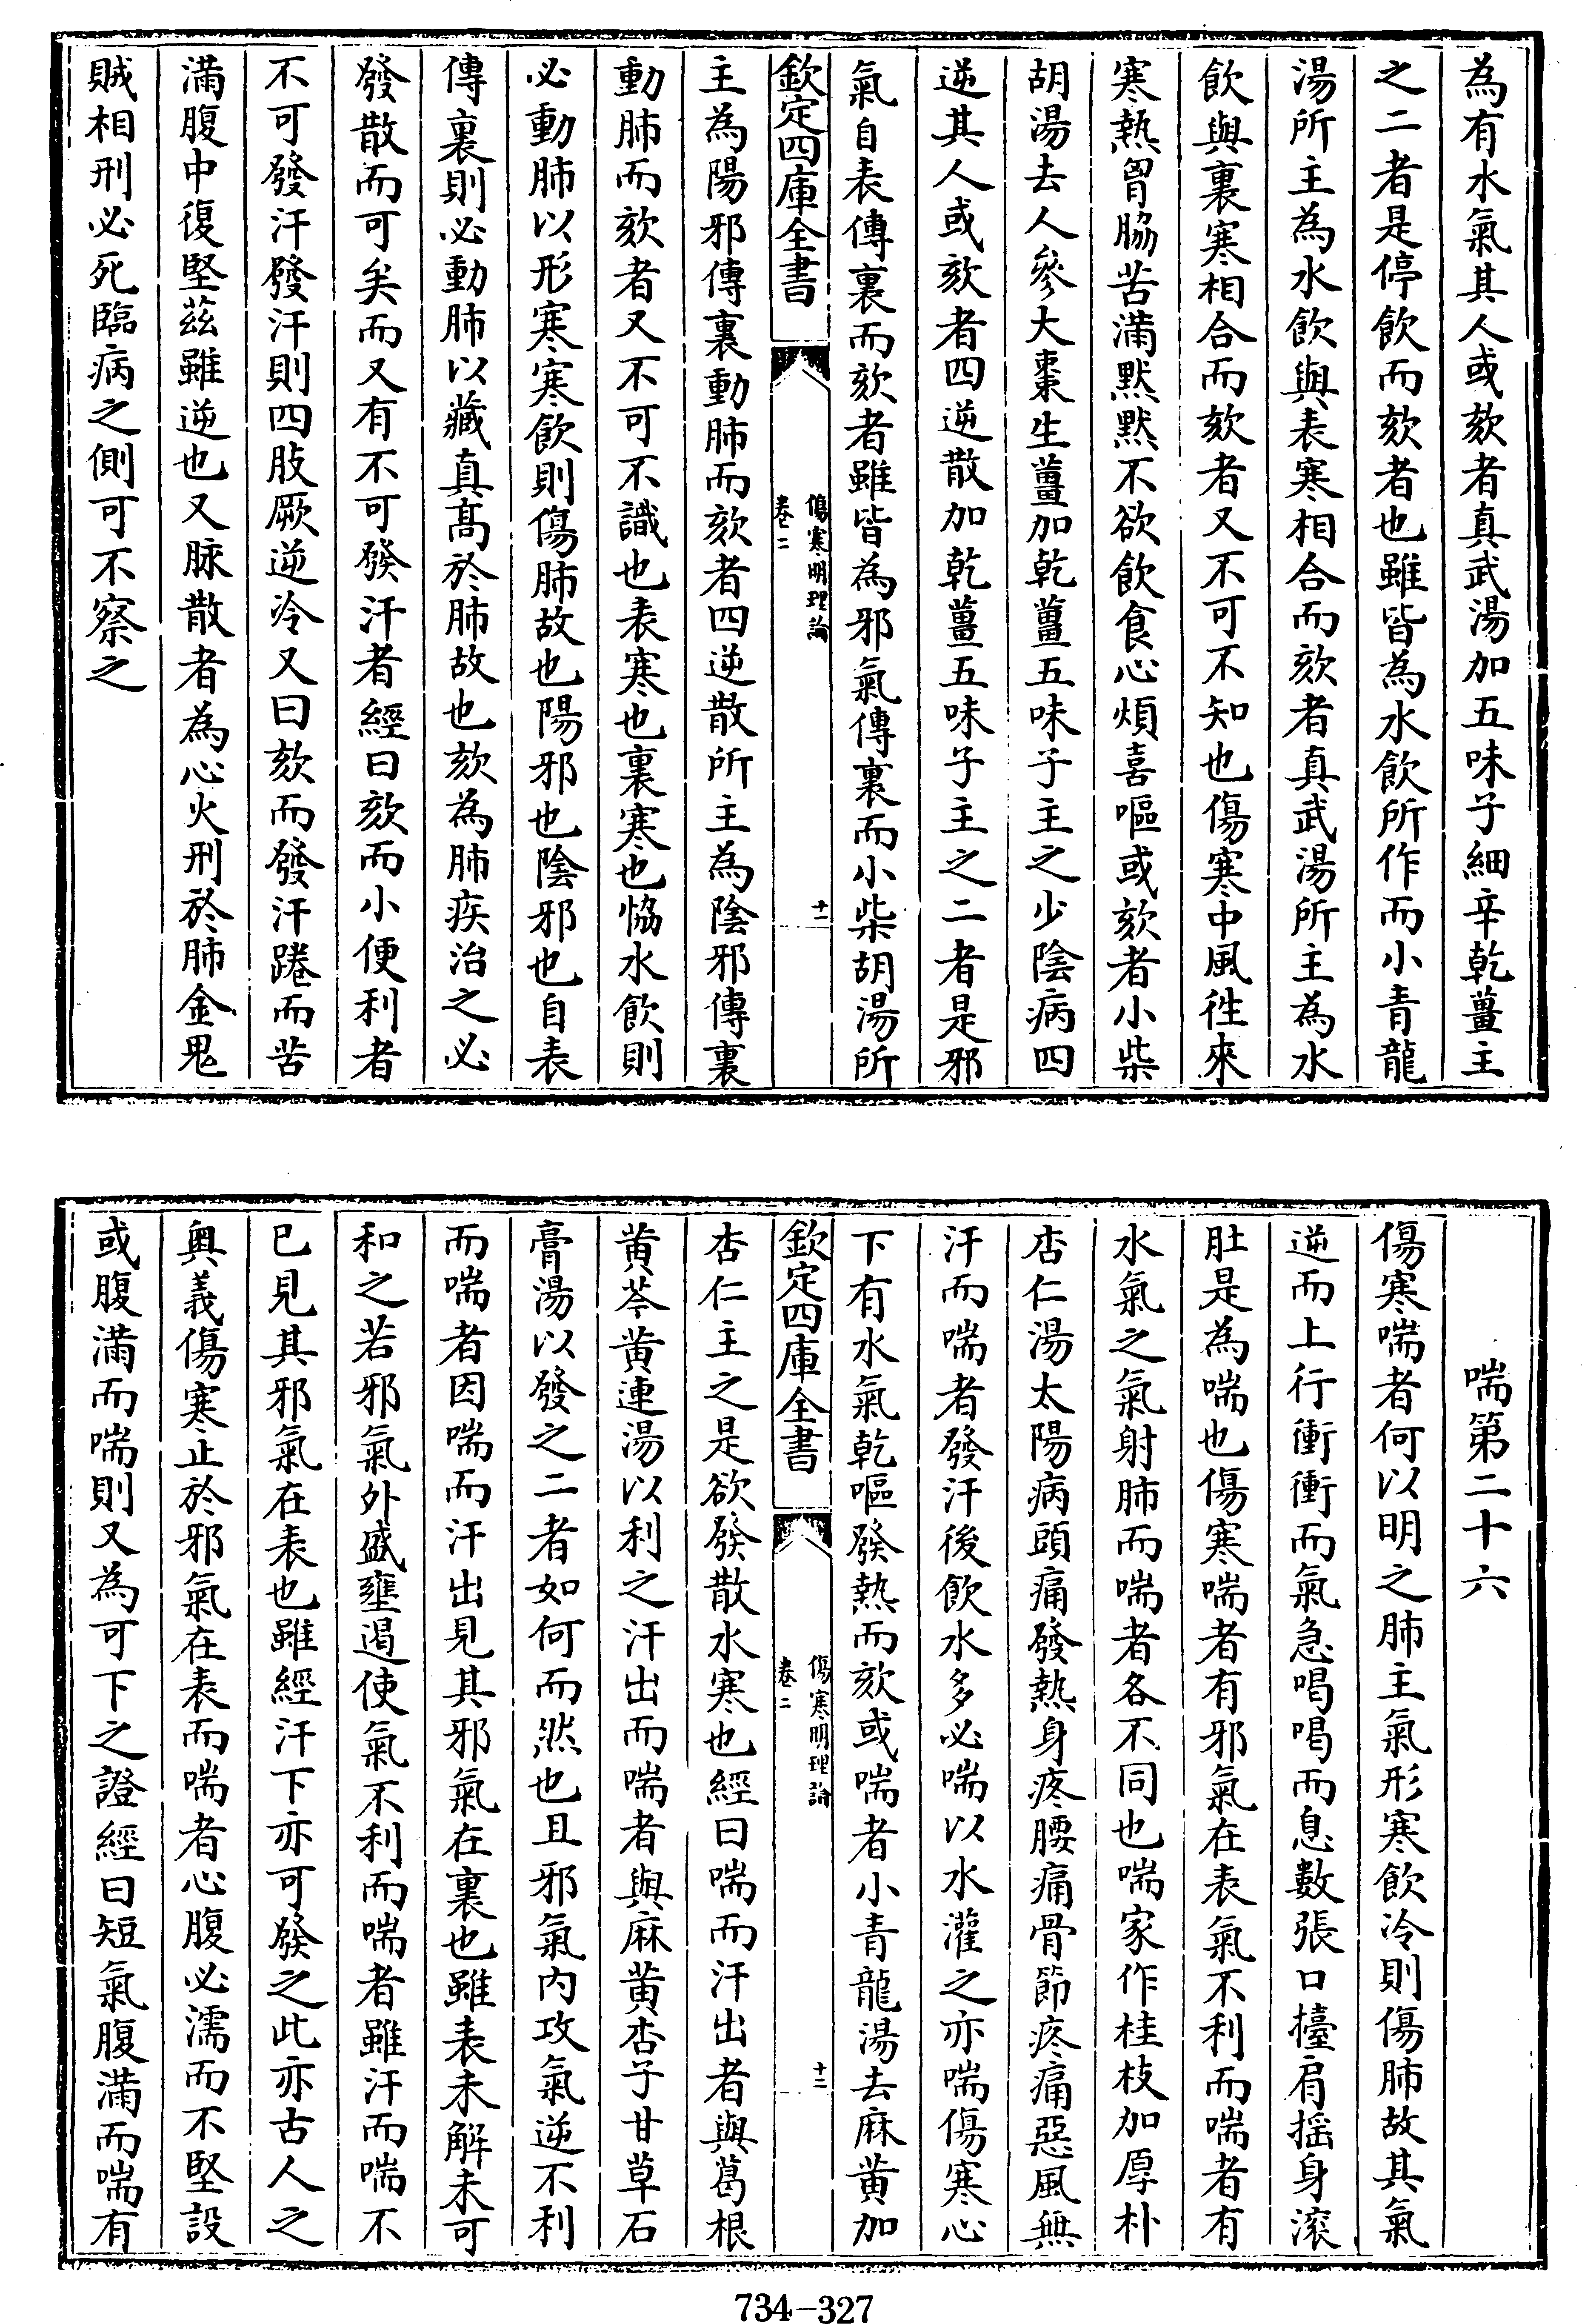 為有水氣其人或欬者真武湯加五味子細辛乾薑主
之二者是停飲而欬者也雖皆為水飲所作而小青龍
湯所主為水飲與表寒相合而欬者真武湯所主為水
飲與裏寒相合而欬者又不可不知也傷寒中風徃來
寒熱胷脇苦滿默默不欲飲食心煩喜嘔或欬者小柴
胡湯去人參大棗生薑加乾薑五味子主之少陰病四
逆其人或欬者四逆散加乾薑五味子主之二者是邪
氣自表傳裏而欬者雖皆為邪氣傳裏而小柴胡湯所
欽定四庫全書
傷寒明理論
卷二
十一
主為陽邪傳裏動肺而欬者四逆散所主為陰邪傳裏
動肺而欬者又不可不識也表寒也裏寒也恊水飲則
必動肺以形寒寒飲則傷肺故也陽邪也陰邪也自表
傳裏則必動肺以藏真髙於肺故也欬為肺疾治之必
發散而可矣而又有不可發汗者經曰欬而小便利者
不可發汗發汗則四肢厥逆冷又曰欬而發汗踡而苦
滿腹中復堅茲雖逆也又脉散者為心火刑於肺金鬼
賊相刑必死臨病之側可不察之
喘第二十六
傷寒喘者何以明之肺主氣形寒飲冷則傷肺故其氣
逆而上行衝衝而氣急喝喝而息數張口擡肩揺身滚
肚是為喘也傷寒喘者有邪氣在表氣不利而喘者有
水氣之氣射肺而喘者各不同也喘家作桂枝加厚朴
杏仁湯太陽病頭痛發熱身疼腰痛骨節疼痛惡風無
汗而喘者發汗後飲水多必喘以水灌之亦喘傷寒心
下有水氣乾嘔發熱而欬或喘者小青龍湯去麻黄加
欽定四庫全書
傷寒明理論
卷二
十二
杏仁主之是欲發散水寒也經曰喘而汗出者與葛根
黄芩黄連湯以利之汗出而喘者與麻黄杏子甘草石
膏湯以發之二者如何而然也且邪氣内攻氣逆不利
而喘者因喘而汗出見其邪氣在裏也雖表未解未可
和之若邪氣外盛壅遏使氣不利而喘者雖汗而喘不
已見其邪氣在表也雖經汗下亦可發之此亦古人之
奥義傷寒止於邪氣在表而喘者心腹必濡而不堅設
或腹滿而喘則又為可下之證經曰短氣腹滿而喘有
734-327